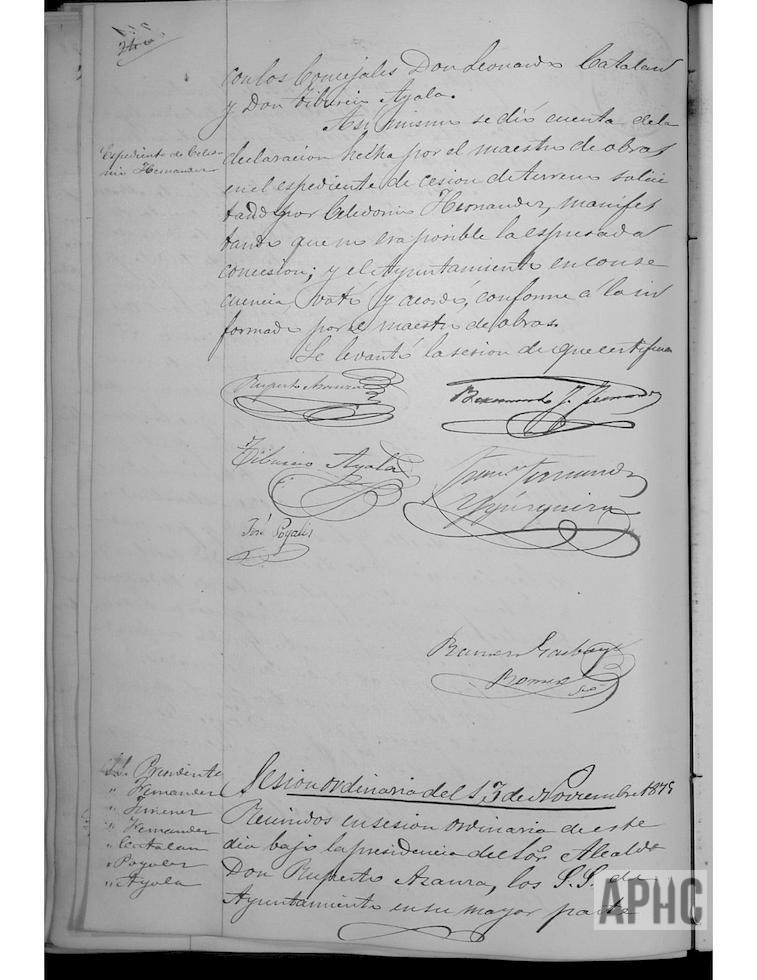 con los Concejales Don Leonardo Catalan
y Don Tiburcio Ayala.
Asi mismo se dió cuenta de la
Espediente de Celedo-
nio Hernandez
declaracion hecha por el maestro de obras
en el espediente de cesion de terreno solici
tado por Celedonio Hernandez, manifes
tando que no era posible la espresada
concesion; y el Ayuntamiento en conse
cuencia, votó y acordó, conforme á lo in
formado por el maestro de obras.
Se levantó la sesion de que certifico
Ruperto Azaura
Tiburcio Ayala
José Poyales
Ramon
Sesion ordinaria del 17 de Noviembre 1875
Sr. Presidente
" Hernandez
" Jimenez
" Hernandez
" Catalan
" Poyales
" Ayala
Reunidos en sesion ordinaria de este
dia bajo la presidencia del Sor. Alcalde
Don Ruperto Azaura, los S.S. de
Ayuntamiento en su mayor parte
APHC